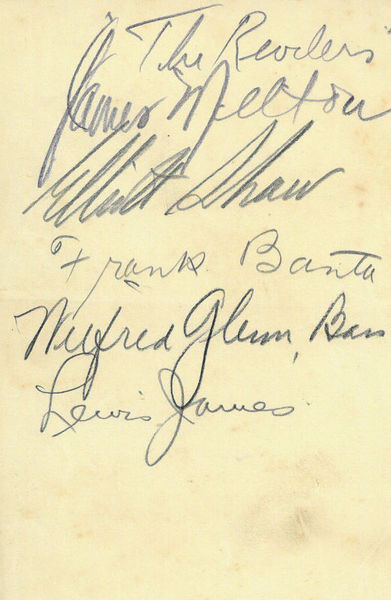 "The Revelers"
James Melton
Elliott Shaw
Frank Banta
Wilfred Glenn, Bass
Lewis James